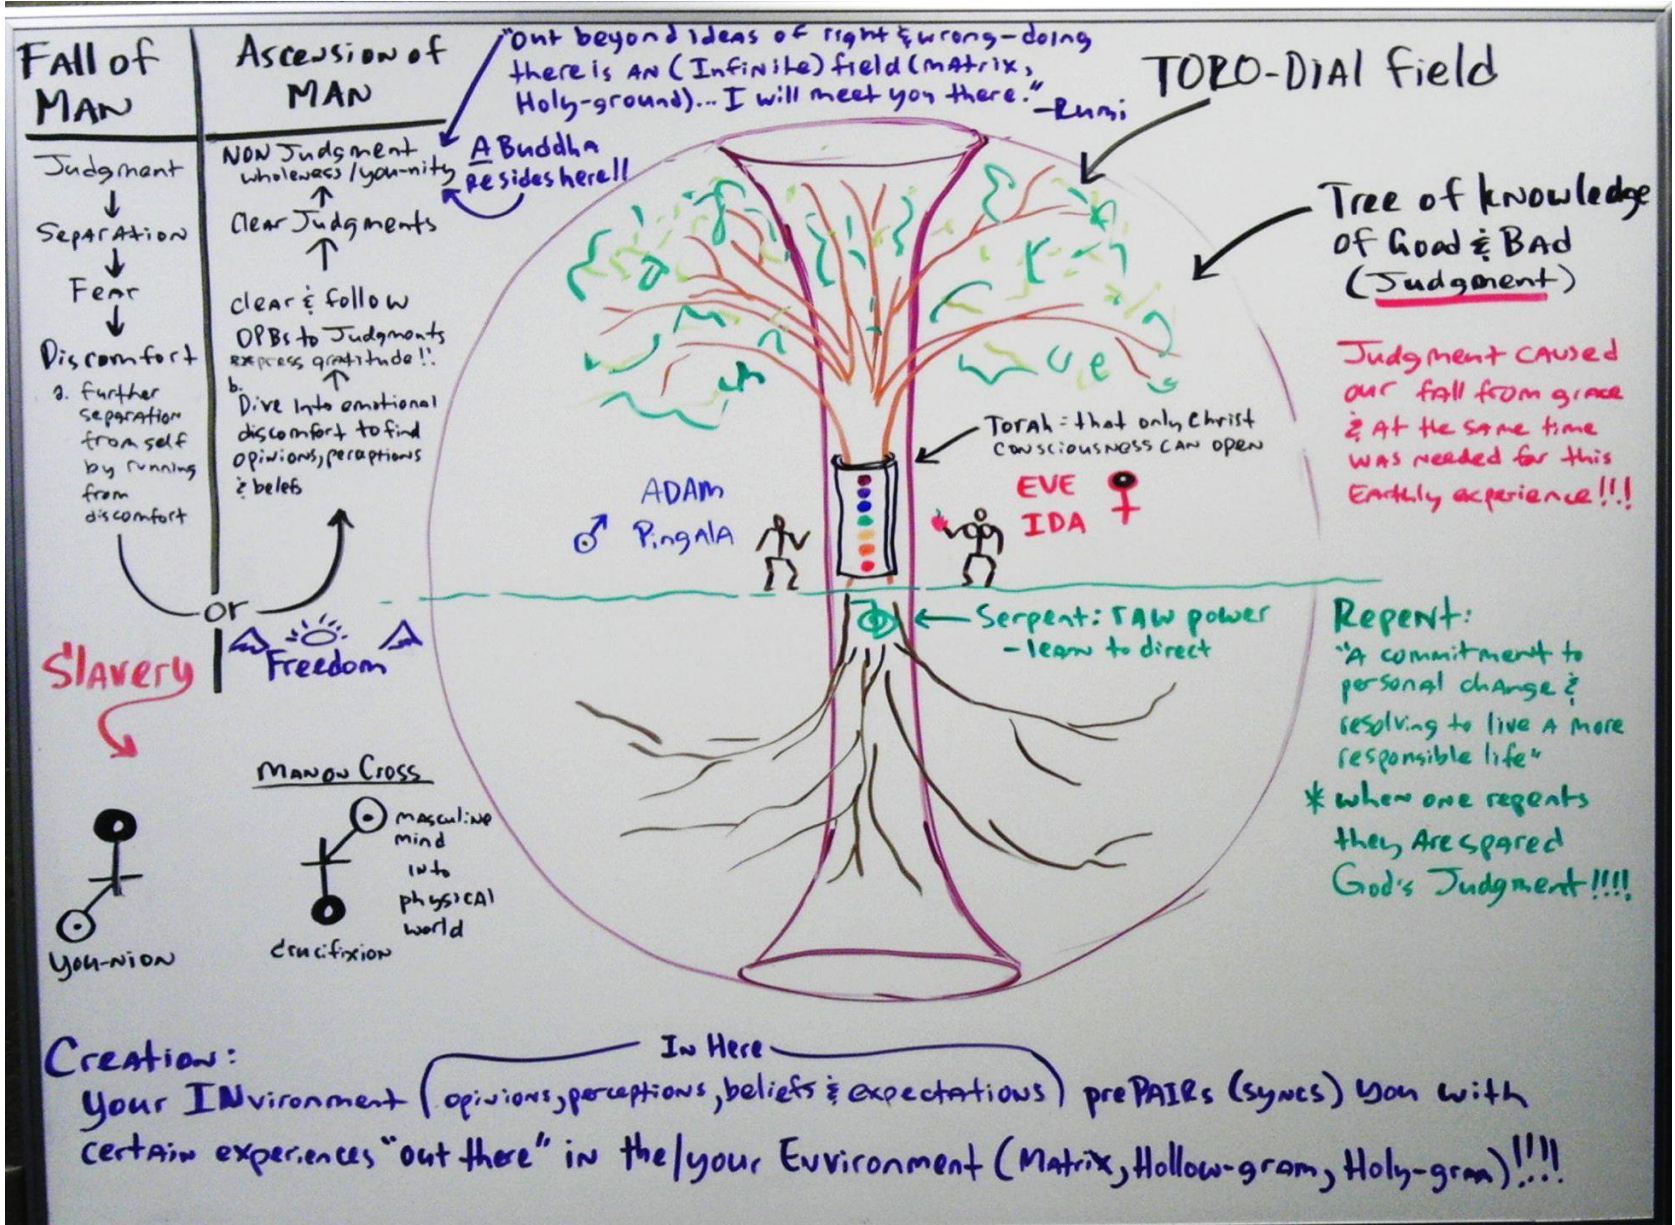 FALL of
MAN
Judgment
Separation
Fear
Discomfort
a. further
separation
from self
by running
from
discomfort
Ascension of
MAN
NON Judgment
wholeness/you-nity
Clear Judgments
clear & follow
OPBs to Judgments
express gratitude!!
b.
Dive into emotional
discomfort to find
opinions, perceptions
& beliefs
or
Slavery
Freedom
"Out beyond ideas of right & wrong-doing
there is an (Infinite) field (matrix,
Holy-ground)... I will meet you there."
-Rumi
A Buddha
Resides here!!
TORO-DIAL field
Tree of knowledge
of Good & BAD
(Judgment)
Judgment caused
our fall from grace
& at the same time
was needed for this
Earthly experience!!!
Torah: that only Christ
consciousness can open
ADAM
Pingala
EVE
IDA
Serpent: raw power
- learn to direct
Repent:
"A commitment to
personal change &
resolving to live a more
responsible life"
* when one repents
they are spared
God's Judgment!!!!
you-nion
Man on Cross
masculine
mind
into
physical
world
crucifixion
Creation:
In Here
your INvironment (opinions, perceptions, beliefs & expectations) prePAIRs (syncs) you with
certain experiences "out there" in the/your Environment (Matrix, Hollow-gram, Holy-gram)!!!!